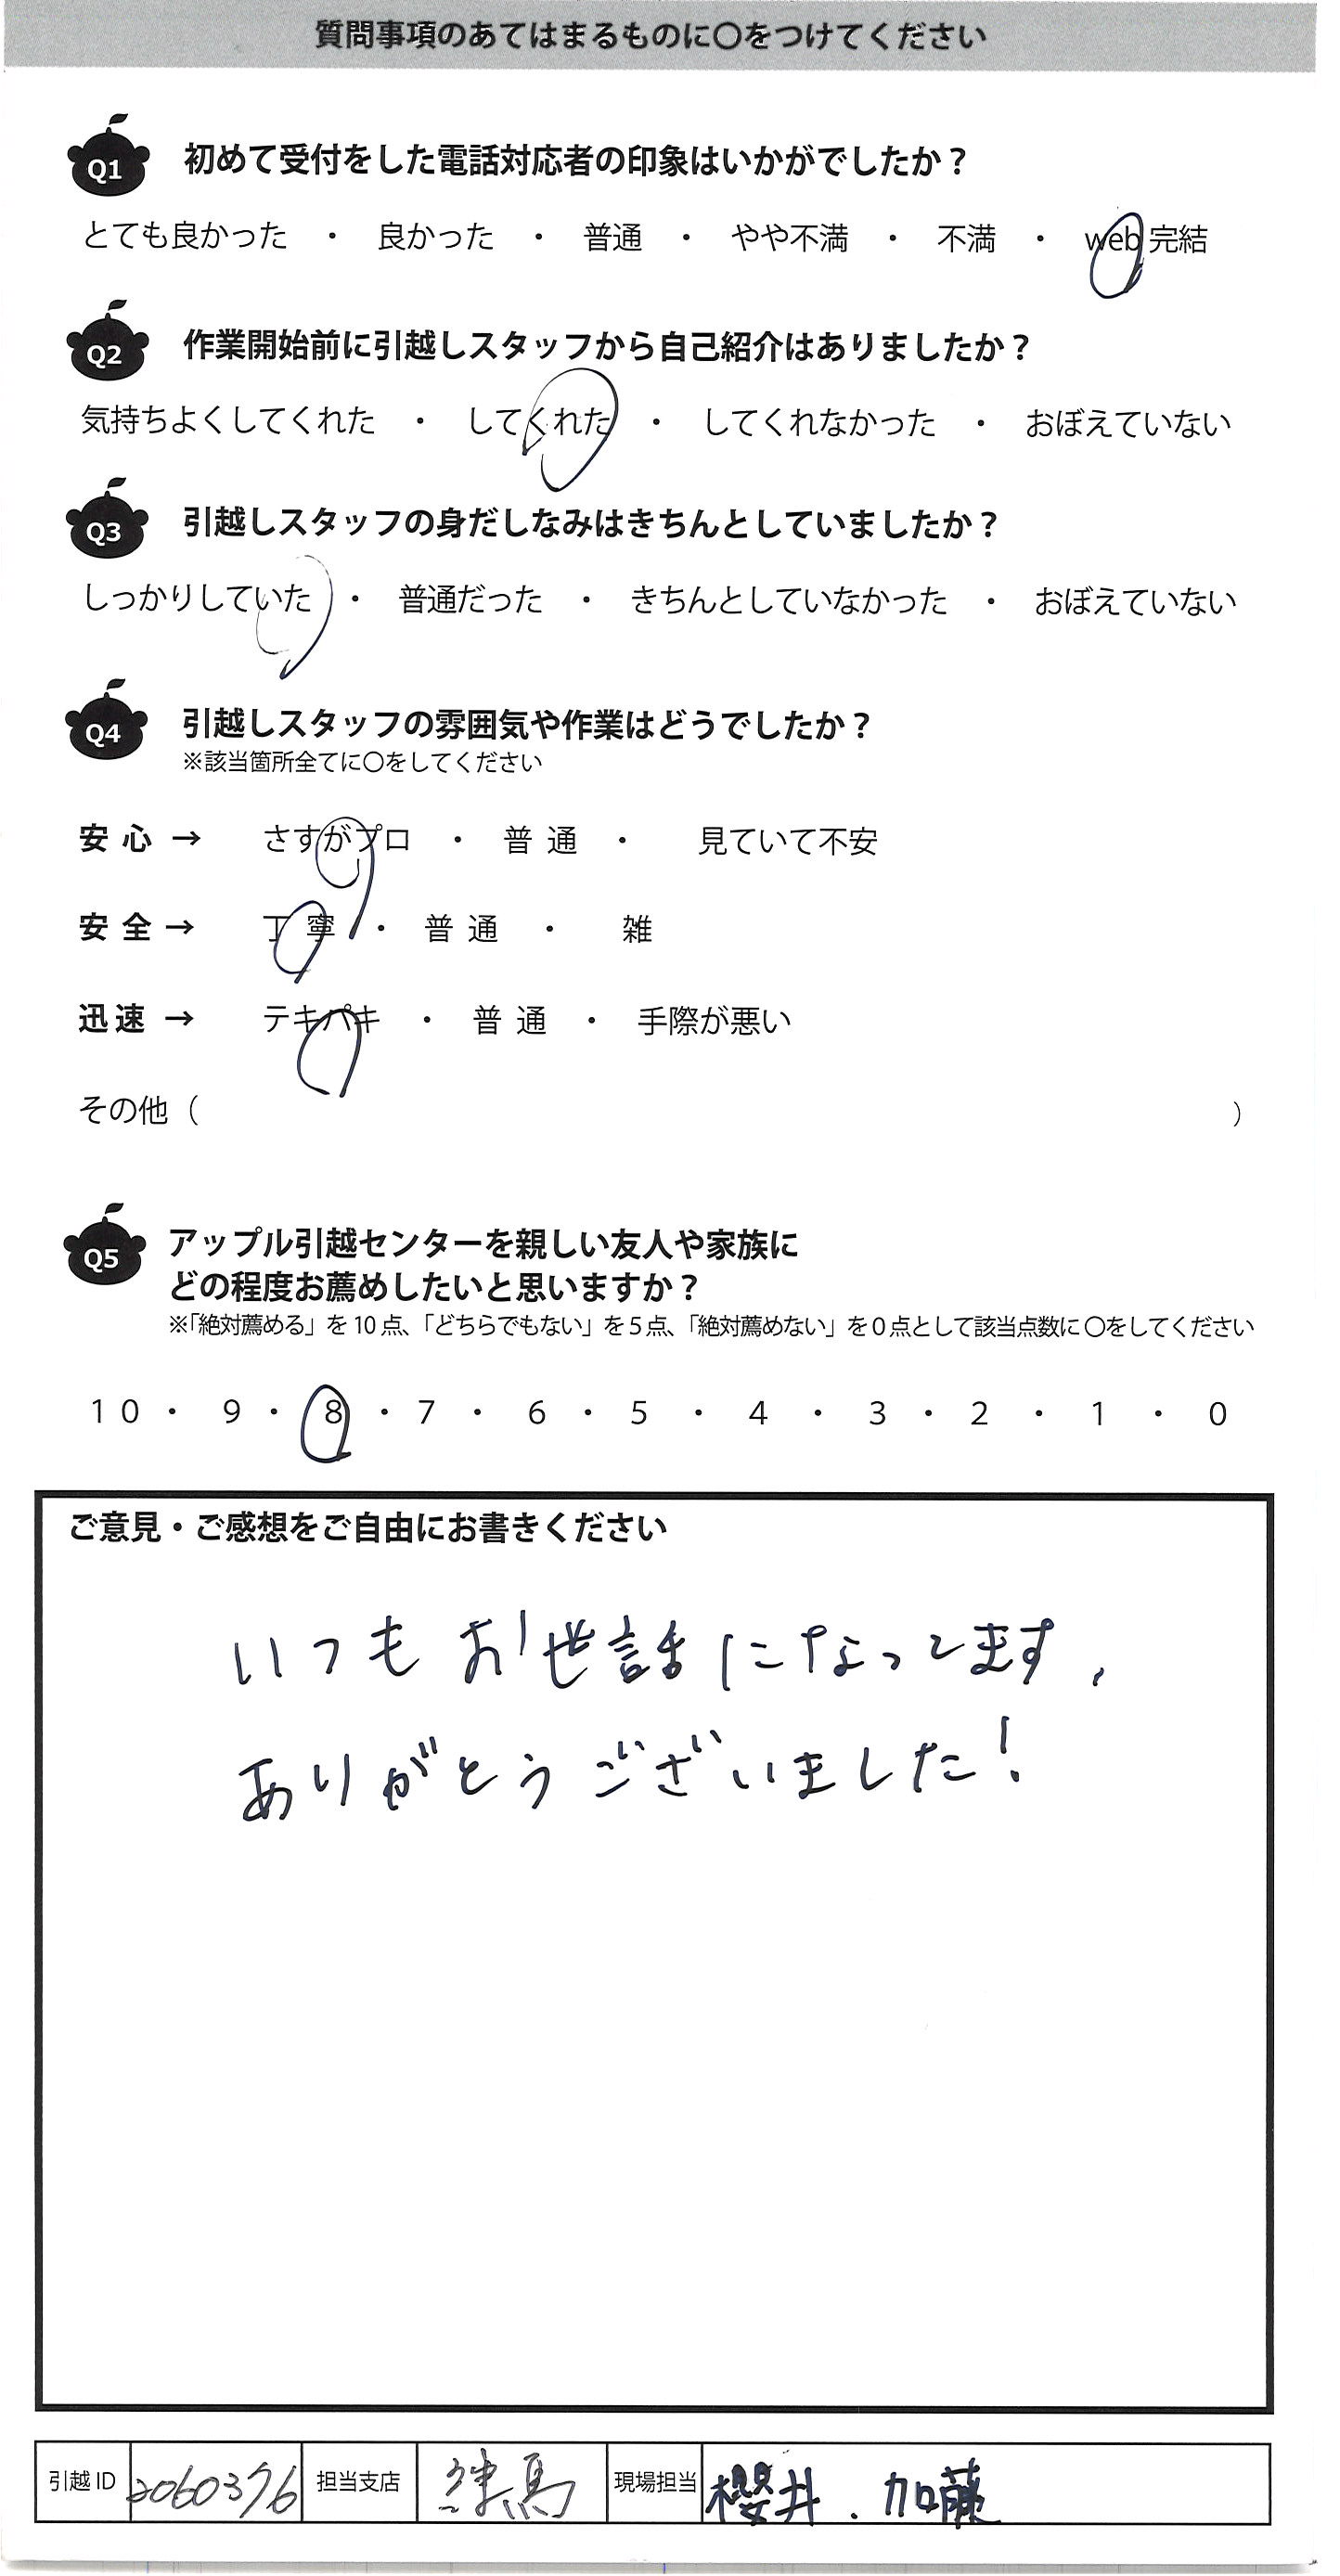 質問事項のあてはまるものに〇をつけてください
Q1 初めて受付をした電話対応者の印象はいかがでしたか？
とても良かった ・ 良かった ・ 普通 ・ やや不満 ・ 不満 ・ web 完結
Q2 作業開始前に引越しスタッフから自己紹介はありましたか？
気持ちよくしてくれた ・ してくれた ・ してくれなかった ・ おぼえていない
Q3 引越しスタッフの身だしなみはきちんとしていましたか？
しっかりしていた ・ 普通だった ・ きちんとしていなかった ・ おぼえていない
Q4 引越しスタッフの雰囲気や作業はどうでしたか？
※該当箇所全てに〇をしてください
安心 → さすがプロ ・ 普通 ・ 見ていて不安
安全 → 丁寧 ・ 普通 ・ 雑
迅速 → テキパキ ・ 普通 ・ 手際が悪い
その他（ ）
Q5 アップル引越センターを親しい友人や家族に
どの程度お薦めしたいと思いますか？
※「絶対薦める」を10点、「どちらでもない」を5点、「絶対薦めない」を0点として該当点数に〇をしてください
10 ・ 9 ・ 8 ・ 7 ・ 6 ・ 5 ・ 4 ・ 3 ・ 2 ・ 1 ・ 0
ご意見・ご感想をご自由にお書きください
いつもお世話になってます、
ありがとうございました！
引越ID 2060376 担当支店 練馬 現場担当 櫻井、加藤